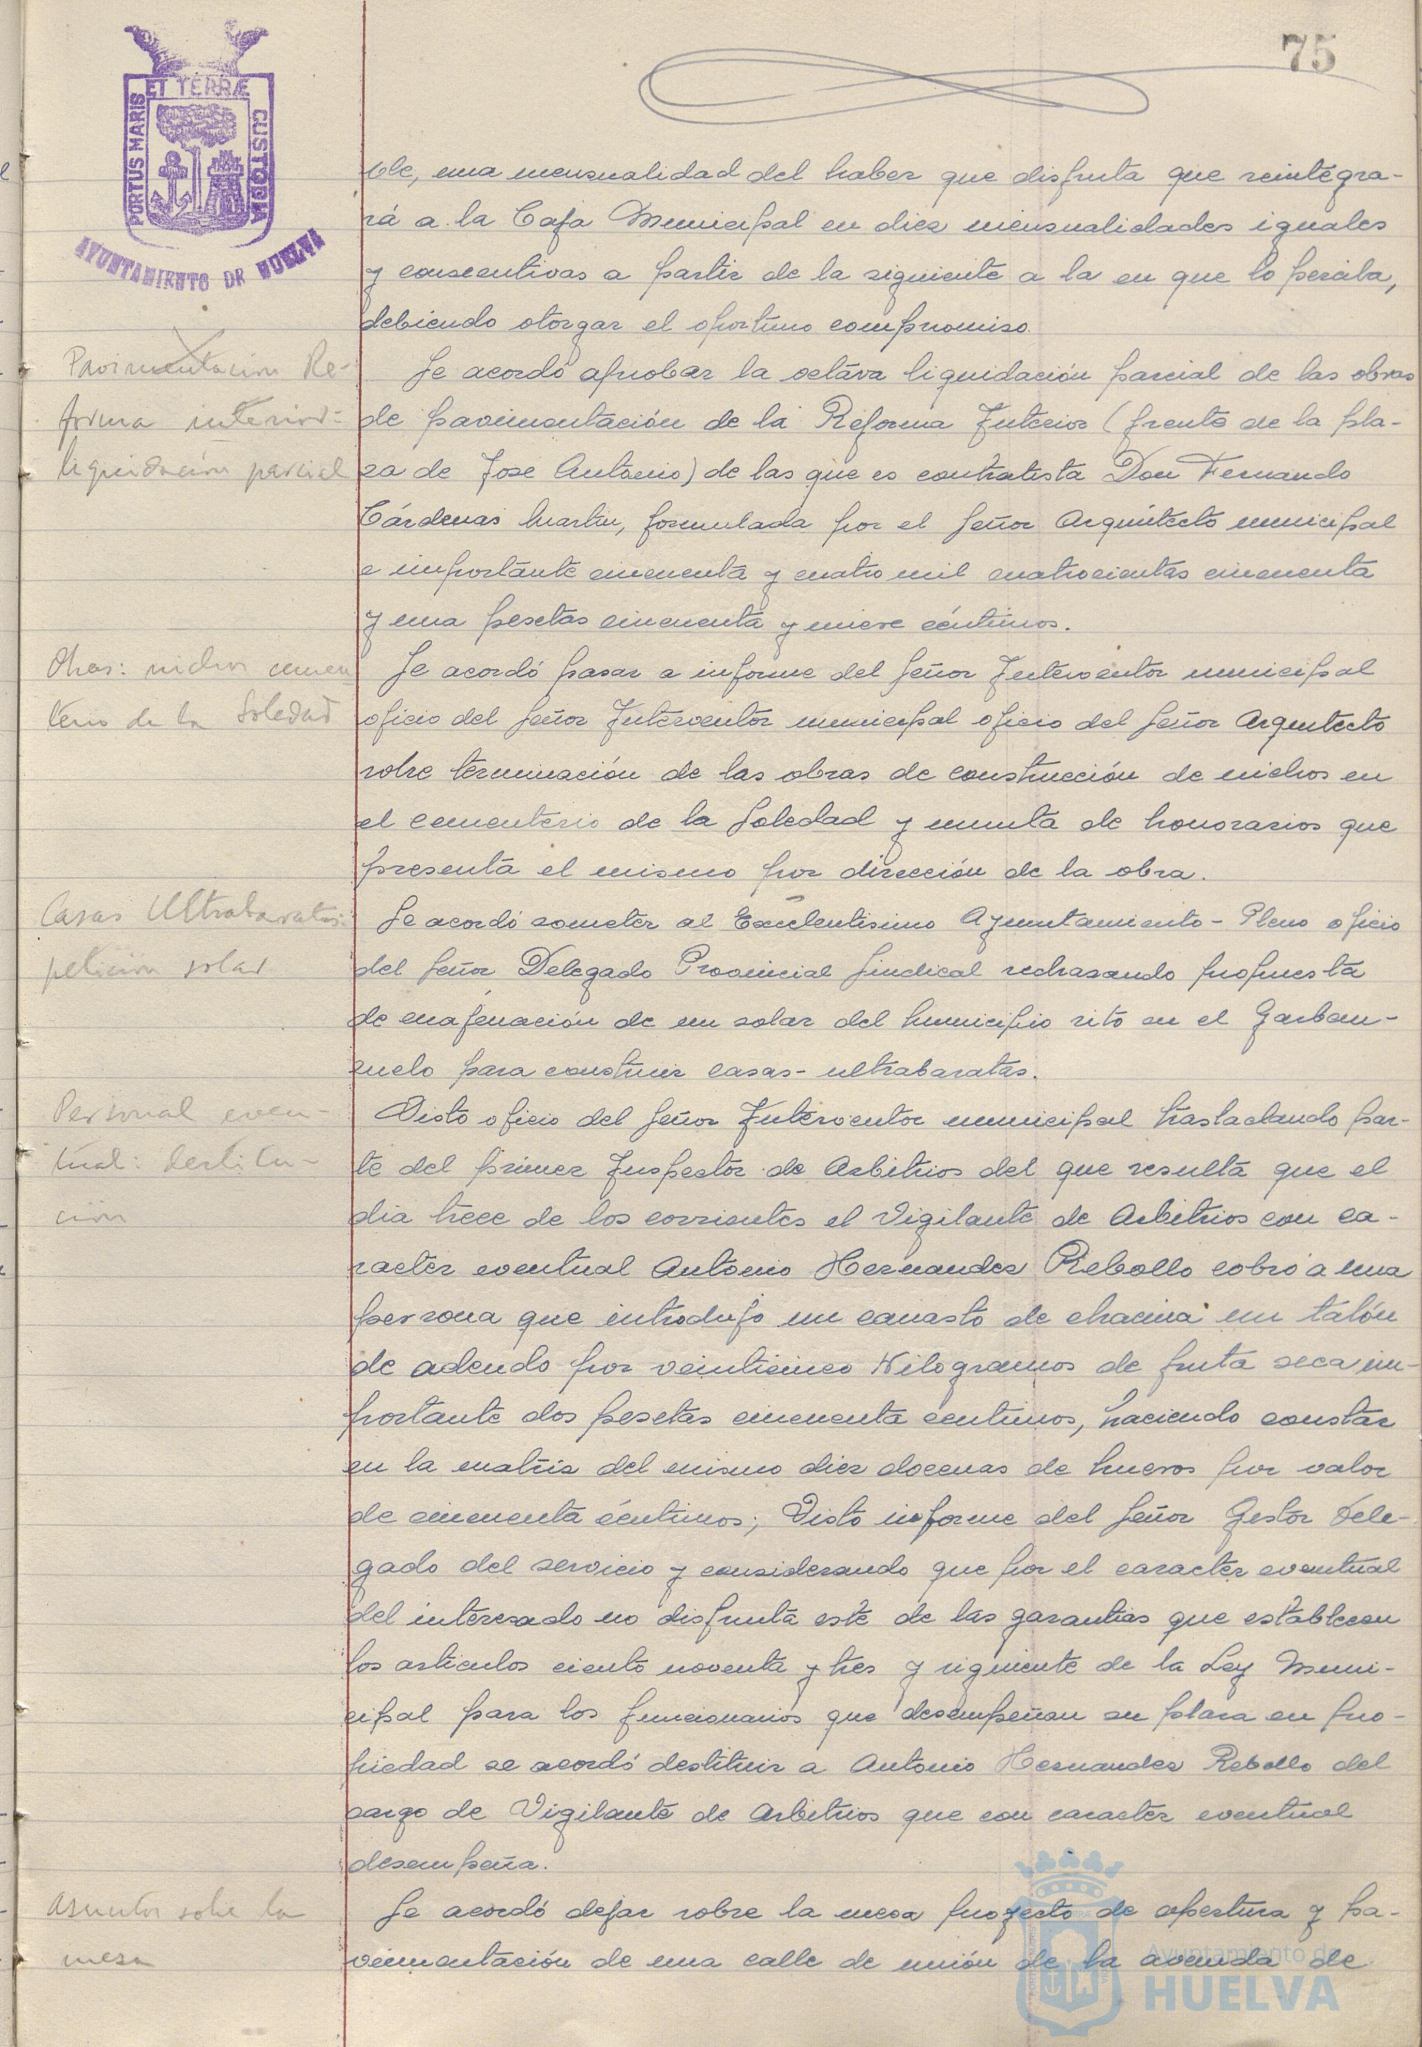 75
PORTUS MARIS ET TERRÆ CUSTODIA
AYUNTAMIENTO DE HUELVA
ble, una mensualidad del haber que disfruta que reintegra-
rá a la Caja Municipal en diez mensualidades iguales
y consecutivas a partir de la siguiente a la en que lo perciba,
debiendo otorgar el oportuno compromiso.
Pavimentacion Re-
forma interior:
liquidación parcial
Se acordó aprobar la octava liquidación parcial de las obras
de pavimentación de la Reforma Interior (frente de la pla-
za de Jose Antonio) de las que es contratista Don Fernando
Cárdenas Martin, formulada por el Señor Arquitecto municipal
e importante cincuenta y cuatro mil cuatrocientas cincuenta
y una pesetas cincuenta y nueve céntimos.
Obras: nichos cemen
terio de la Soledad
Se acordó pasar a informe del Señor Interventor municipal
oficio del Señor Interventor municipal oficio del Señor Arquitecto
sobre terminación de las obras de construcción de nichos en
el cementerio de la Soledad y minuta de honorarios que
presenta el mismo por dirección de la obra.
Casas Ultrabaratas:
peticion solar
Se acordó someter al Excelentisimo Ayuntamiento - Pleno oficio
del Señor Delegado Provincial Sindical rechazando propuesta
de enajenación de un solar del Municipio sito en el Garban-
zuelo para construir casas - ultrabaratas.
Personal even-
tual: destitu-
cion
Visto oficio del Señor Interventor municipal trasladando par-
te del primer Inspector de Arbitrios del que resulta que el
dia trece de los corrientes el Vigilante de Arbitrios con ca-
racter eventual Antonio Hernandez Rebollo cobró a una
persona que introdujo un canasto de chacina un talón
de adeudo por veinticinco Kilogramos de fruta seca im-
portante dos pesetas cincuenta centimos, haciendo constar
en la matriz del mismo diez docenas de huevos por valor
de cincuenta céntimos; Visto informe del Señor Gestor Dele-
gado del servicio y considerando que por el caracter eventual
del interesado no disfruta este de las garantias que establecen
los articulos ciento noventa y tres y siguiente de la Ley Muni-
cipal para los funcionarios que desempeñan su plaza en pro-
piedad se acordó destituir a Antonio Hernandez Rebollo del
cargo de Vigilante de Arbitrios que con caracter eventual
desempeña.
Asuntos sobre la
mesa
Se acordó dejar sobre la mesa proyecto de apertura y pa-
vimentación de una calle de unión de la avenida de
Ayuntamiento de
HUELVA